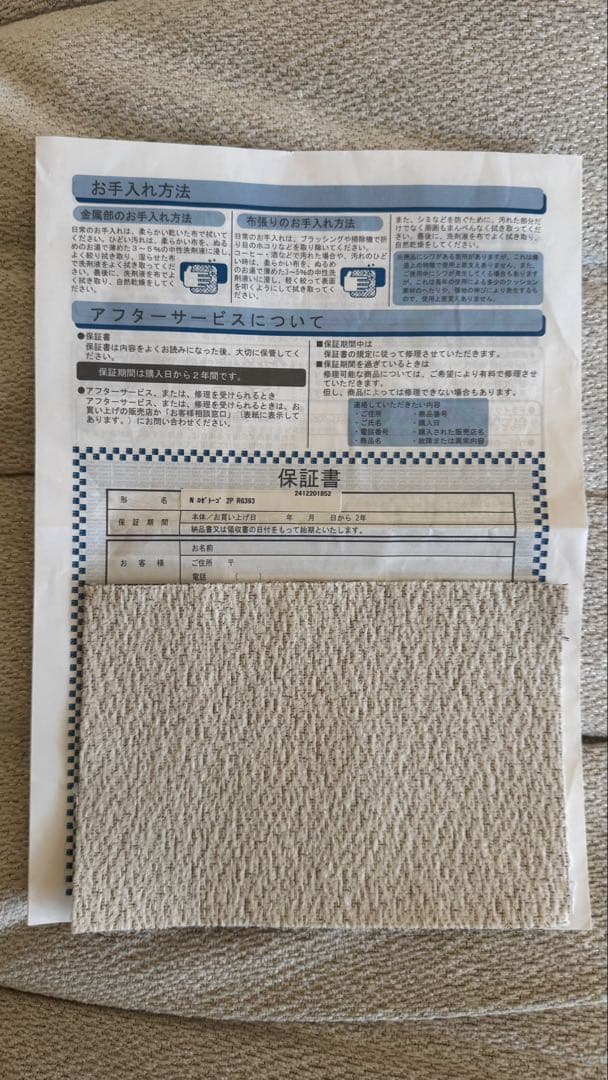 お手入れ方法
金属部のお手入れ方法
日常のお手入れは、柔らかい乾いた布で拭いて
ください。ひどい汚れは、柔らかい布を、ぬる
めのお湯で薄めた3~5%の中性洗剤液に浸し、
よく絞り拭き取り、湿らせた布
で洗剤液をよく拭き取ってくだ
さい。最後に、洗剤液を布でよ
く拭き取り、自然乾燥をしてく
ださい。
布張りのお手入れ方法
日常のお手入れは、ブラッシングや掃除機で折
り目のホコリなどを取り除いてください。
コーヒー・酒などで汚れた場合や、汚れのひど
い時は、柔らかい布を、ぬるめ
のお湯で薄めた3~5%の中性洗
剤液に浸し、軽く絞って表面
を叩くようにして拭き取ってく
ださい。
また、シミなどを防ぐために、汚れた部分だ
けでなく周囲もまんべんなく拭き取ってくだ
さい。最後に、洗剤液を布でよく拭き取り、
自然乾燥をしてください。
※商品にシワがある箇所がありますが、これは構
造上の特徴で使用上差支えありません。また、
ご使用中にシワが発生してくる場合もあります
が、これは長年の使用による多少のクッション
素材のへたりや、張地の伸びにより発生するもの
で、使用上差支えありません。
アフターサービスについて
●保証書
保証書は内容をよくお読みになった後、大切に保管してく
ださい。
保証期間は購入日から2年間です。
●アフターサービス、または、修理を受けられるとき
アフターサービス、または、修理を受けられるときは、お
買い上げの販売店か「お客様相談窓口」(表紙に表示して
あります。)にお問い合わせください。
■保証期間中は
保証書の規定に従って修理させていただきます。
■保証期間を過ぎているときは
修理可能な商品については、ご希望により有料で修理させ
ていただきます。
但し、商品によっては修理できない場合もあります。
連絡していただきたい内容
・ご住所 ・商品番号
・ご氏名 ・購入日
・電話番号 ・購入された販売店名
・商品名 ・故障または異常内容
保証書
2412201852
形 名 N ﾛｾﾞﾄｰｺﾞ 2P RG393
保証期間 本体/お買い上げ日 年 月 日から 2年
納品書又は領収書の日付をもって始期といたします。
お客様 お名前
ご住所 〒
電話 ( )